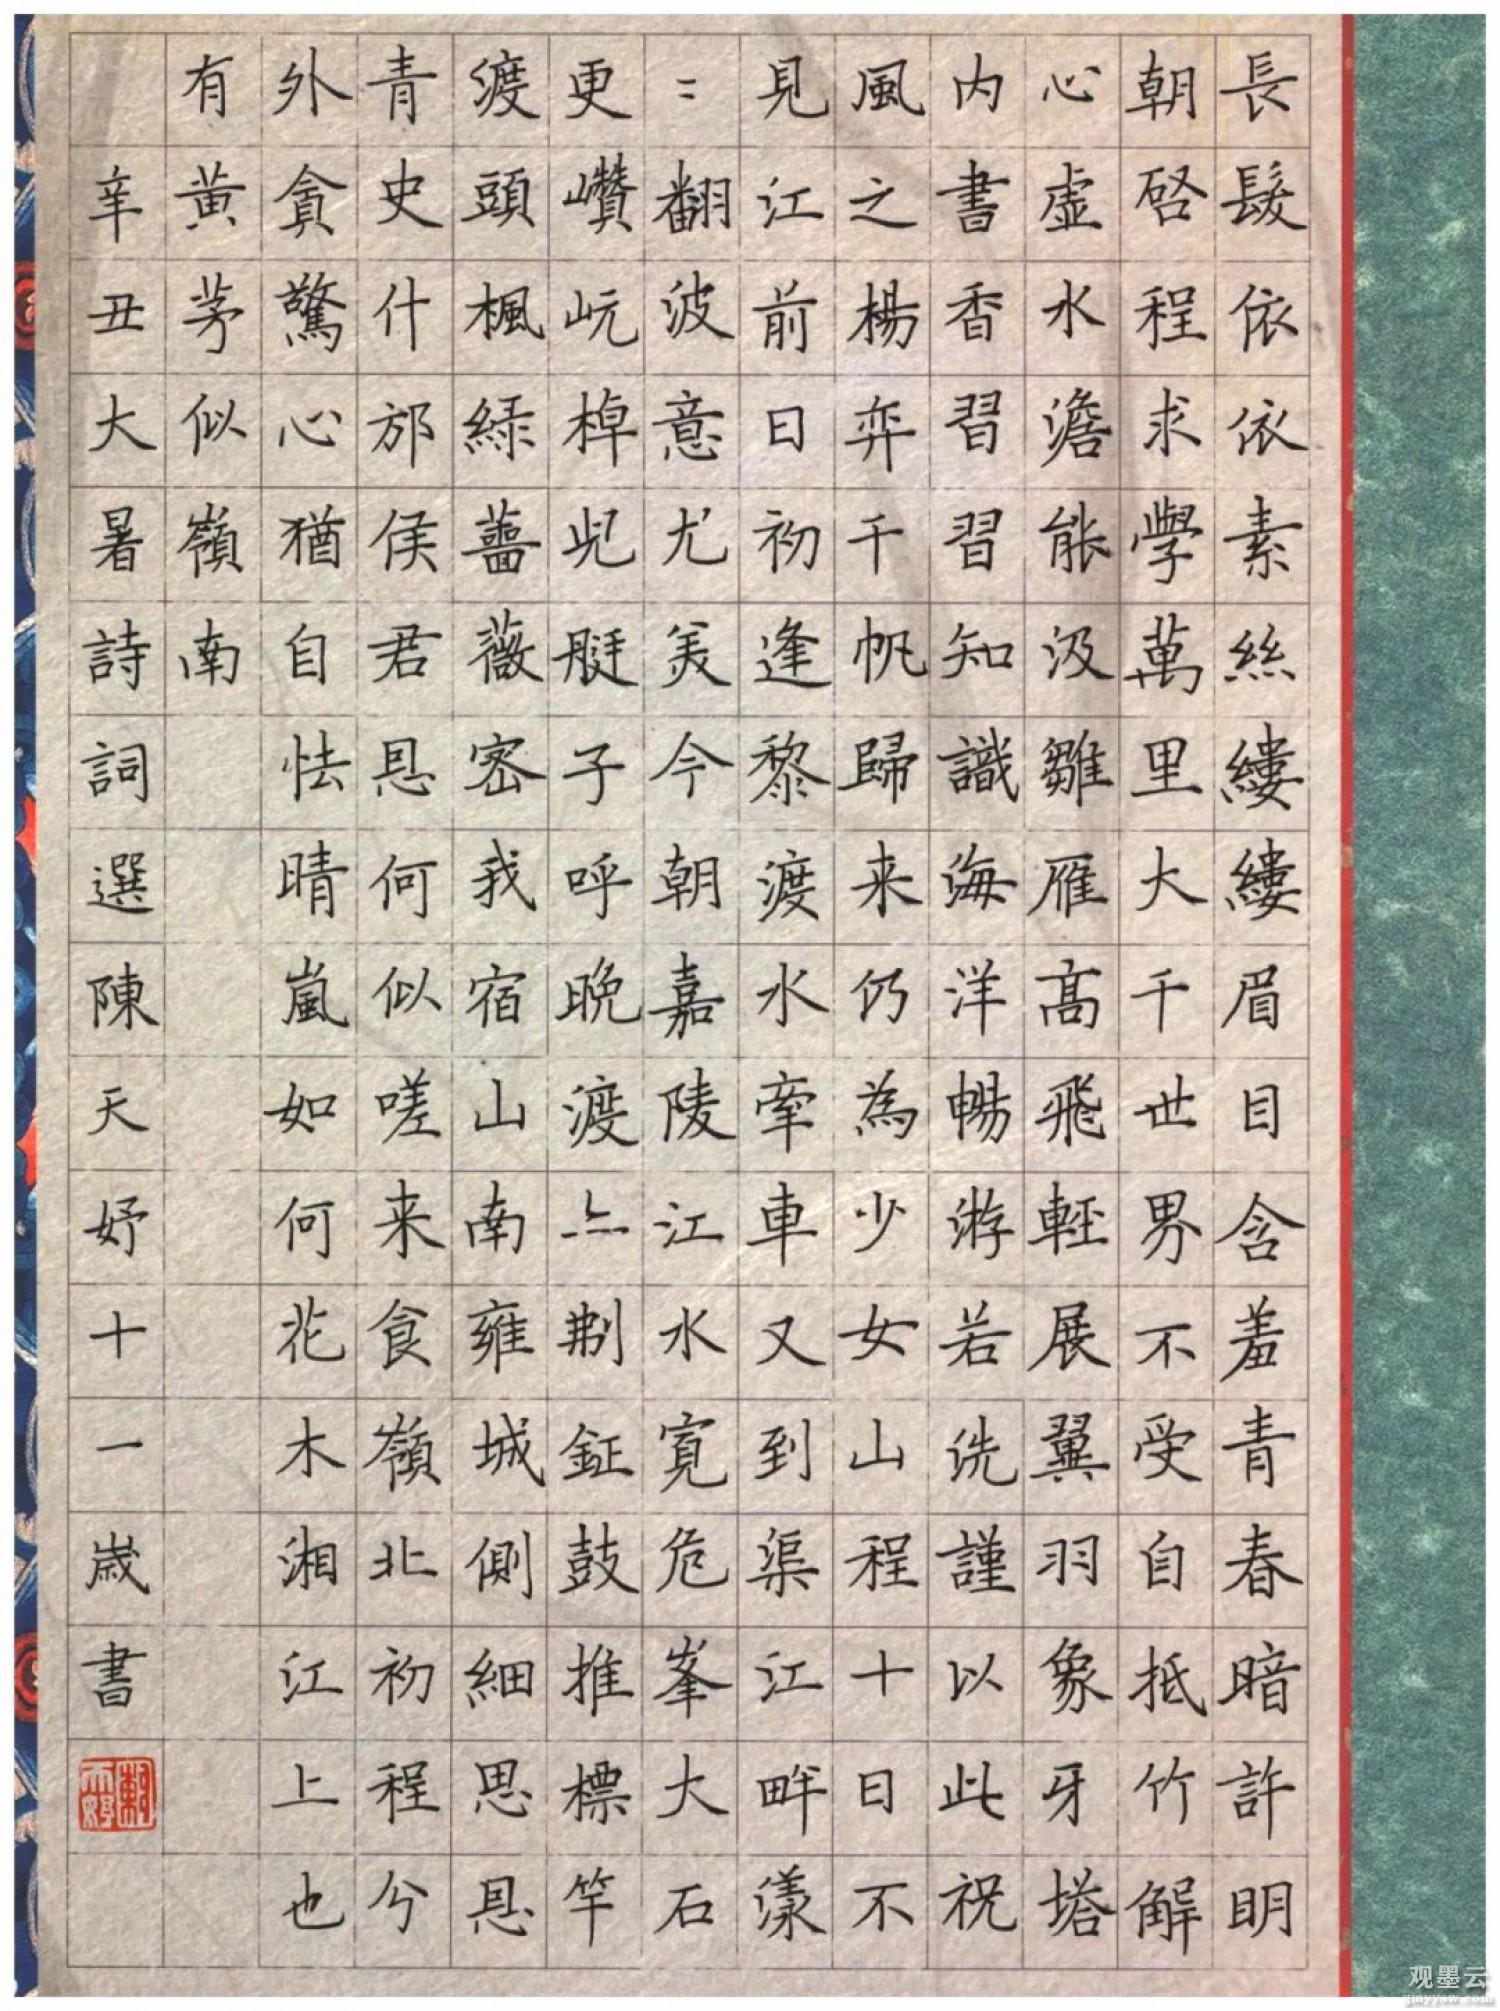 長髮依依素絲縷縷眉目含羞青春暗許明
朝啓程求學萬里大千世界不受自抵竹解
心虛水澹能汲雛雁高飛輕展翼羽象牙塔
内書香習習知識海洋暢游若诜謹以此祝
風之楊弈千帆歸来仍為少女山程十日不
見江前日初逢黎渡水牽車又到渠江畔漾
〻翻波意尤美今朝嘉陵江水寬危峯大石
更巑岏棹舭艇子呼晚渡亠荆鉦鼓推標竿
渡頭楓綠薔薇密我宿山南雍城側細思恩
青史什邡侯君恩何似嗟来食嶺北初程兮
外貪驚心猶自怯晴嵐如何花木湘江上也
有黄茅似嶺南
辛丑大暑詩詞選陳天妤十一歲書
观墨云
gmyysw.com